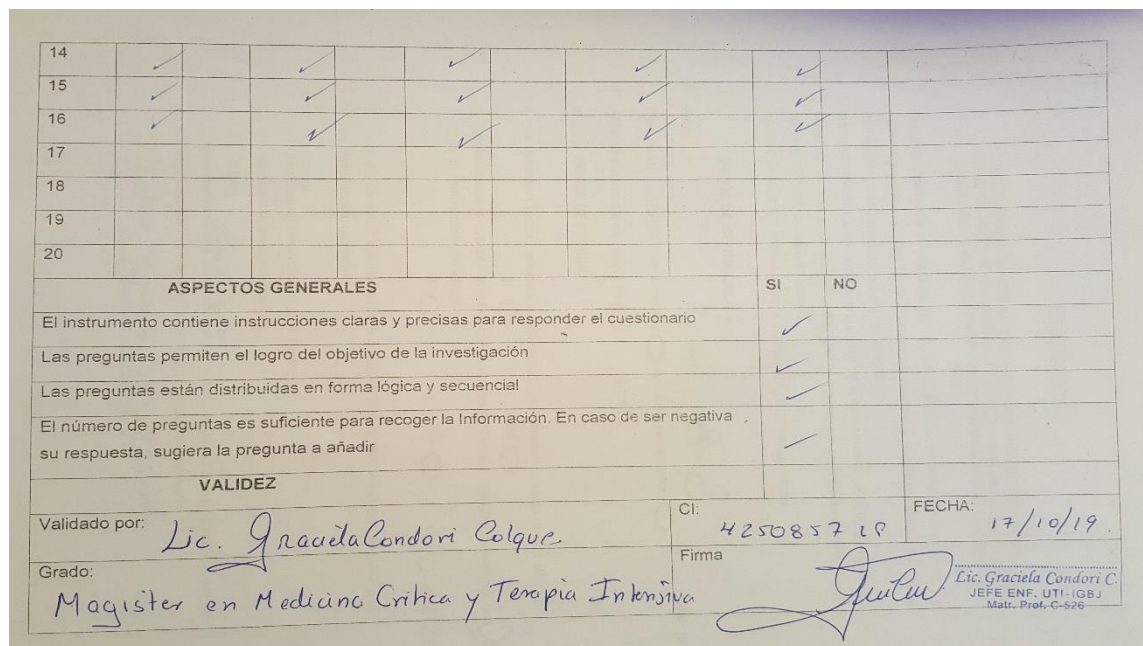 14 ✓ ✓ ✓ ✓ ✓
15 ✓ ✓ ✓ ✓ ✓
16 ✓ ✓ ✓ ✓ ✓
17
18
19
20
ASPECTOS GENERALES SI NO
El instrumento contiene instrucciones claras y precisas para responder el cuestionario ✓
Las preguntas permiten el logro del objetivo de la investigación ✓
Las preguntas están distribuidas en forma lógica y secuencial ✓
El número de preguntas es suficiente para recoger la Información. En caso de ser negativa
su respuesta, sugiera la pregunta a añadir ✓
VALIDEZ
Validado por: Lic. Graciela Condori Colque CI: 4250857 LP FECHA: 17/10/19.
Grado: Firma
Magister en Medicina Critica y Terapia Intensiva
Lic. Graciela Condori C.
JEFE ENF. UTI-IGBJ
Matr. Prof. C-526